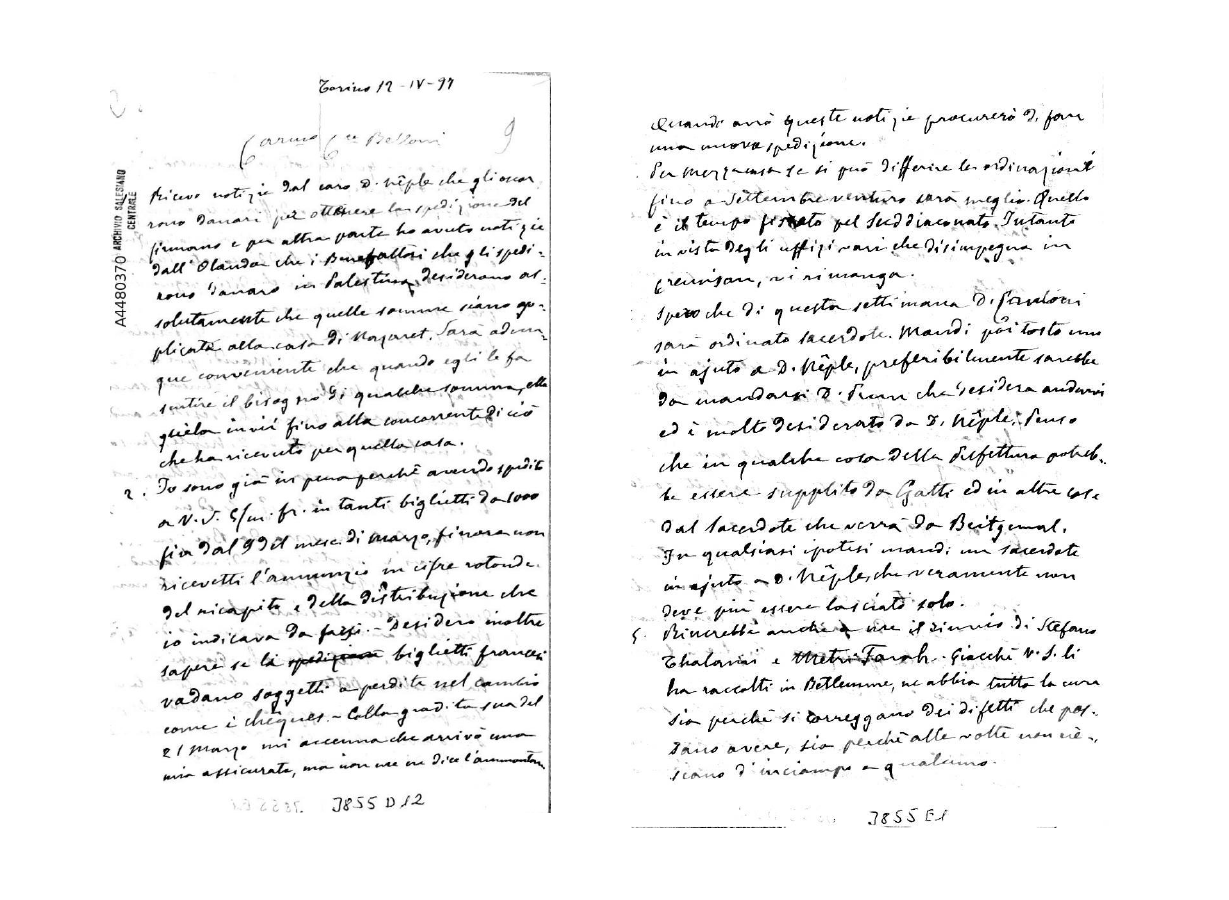 Torino 12-IV-97
Carmo Cte Belloni
9
ARCHIVIO SALESIANO
CENTRALE
A4480370
Ricevo notizie dal caro D. Nèple che gli occor
rono danari per ottenere la spedizione del
firmano e per altra parte ho avuto notizie
dall'Olanda che i Benefattori che gli spedi-
rono danaro in Palestina, desiderano as-
solutamente che quelle somme siano ap-
plicate alla casa di Nazaret. Sarà adun-
que conveniente che quando egli le fa
sentire il bisogno di qualche somma, ella
gliela invii fino alla concorrente di ciò
che ha ricevuto per quella casa.
2. Io sono già in pena perchè avendo spedito
a V. S. 5/m. fr. in tanti biglietti da 1000
fin dal 9 del mese di marzo, finora non
ricevetti l'annunzio in cifre rotonde
del ricapito e della distribuzione che
io indicava da farsi. - Desidero inoltre
sapere se la spedizione biglietti francesi
vadano soggetti a perdite nel cambio
come i chèques. - Colla gradita sua del
21 Marzo mi accenna che arrivò una
mia assicurata, ma non me ne dice l'ammontare
3855 D 12
Quando avrò queste notizie procurerò di fare
una nuova spedizione.
Per Mezzacasa se si può differire le ordinazioni
fino a Settembre venturo sarà meglio. Quello
è il tempo fissato pel Suddiaconato. Intanto
in vista degli uffizi vari che disimpegna in
Cremisan, vi rimanga.
Spero che di questa settimana D.
sarà ordinato sacerdote. Mandi poi tosto uno
in ajuto a D. Nèple, preferibilmente sarebbe
da mandarsi D. Prun che desidera andarvi
ed è molto desiderato da D. Nèple. Penso
che in qualche cosa della Prefettura potreb-
be essere supplito da Gatti ed in altre cose
dal sacerdote che verrà da Beitgemal.
In qualsiasi ipotesi mandi un sacerdote
in ajuto a D. Nèple che veramente non
deve più essere lasciato solo.
5. Rincrebbe anche a me il rinvio di Stefano
Thalamí e Metri Farah. Giacchè V. S. li
ha raccolti in Betlemme, ne abbia tutta la cura
sia perchè si correggano dei difetti che pos-
sano avere, sia perchè alle volte non rie-
scano d'inciampo a qualcuno.
3855 E1